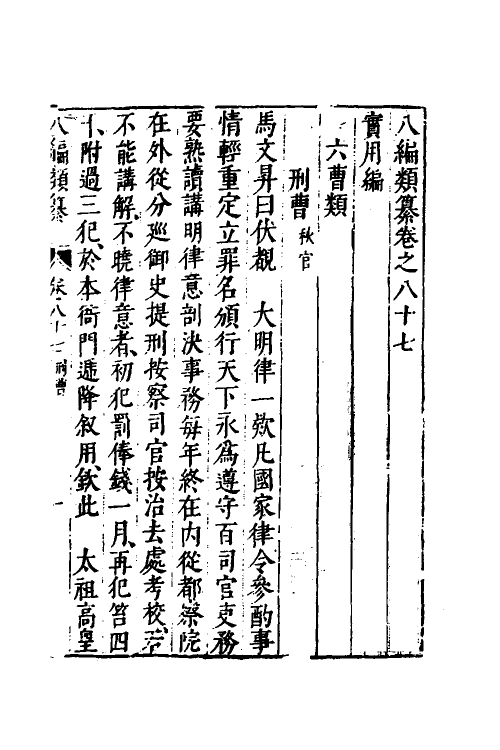 八編類纂卷之八十七
實用編
六曹類
刑曹秋官
馬文昇曰伏覩　大明律一欵凡國家律令參酌事
情輕重定立罪名頒行天下永爲遵守百司官吏務
要熟讀講明律意剖決事務每年終在内從都察院
在外從分巡御史提刑按察司官按治去處考校若
不能講解不曉律意者初犯罰俸錢一月再犯笞四
十附過三犯於本衙門遞降叙用欽此　太祖高皇
八編類纂　卷八十七刑曹　一